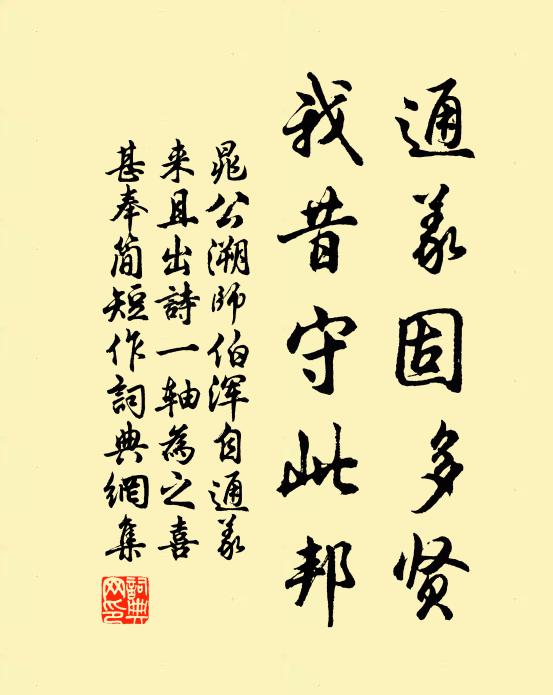 通义固多贤
我昔守此邦
晁公溯師伯浑自通义
来且出詩一轴為之喜
甚奉简短作詞典網集
詞典网印